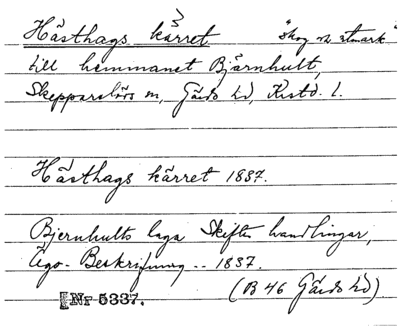 Hästhags kärret "skog o. utmark"
till hemmanet Bjärnhult,
Skepparslövs sn, Gärds hd, Krstd. l.
Hästhags kärret 1837.
Bjernhults laga Skiftes handlingar,
Ägo-Beskrifning .. 1837.
(B 46 Gärds hd)
Nr 5337.